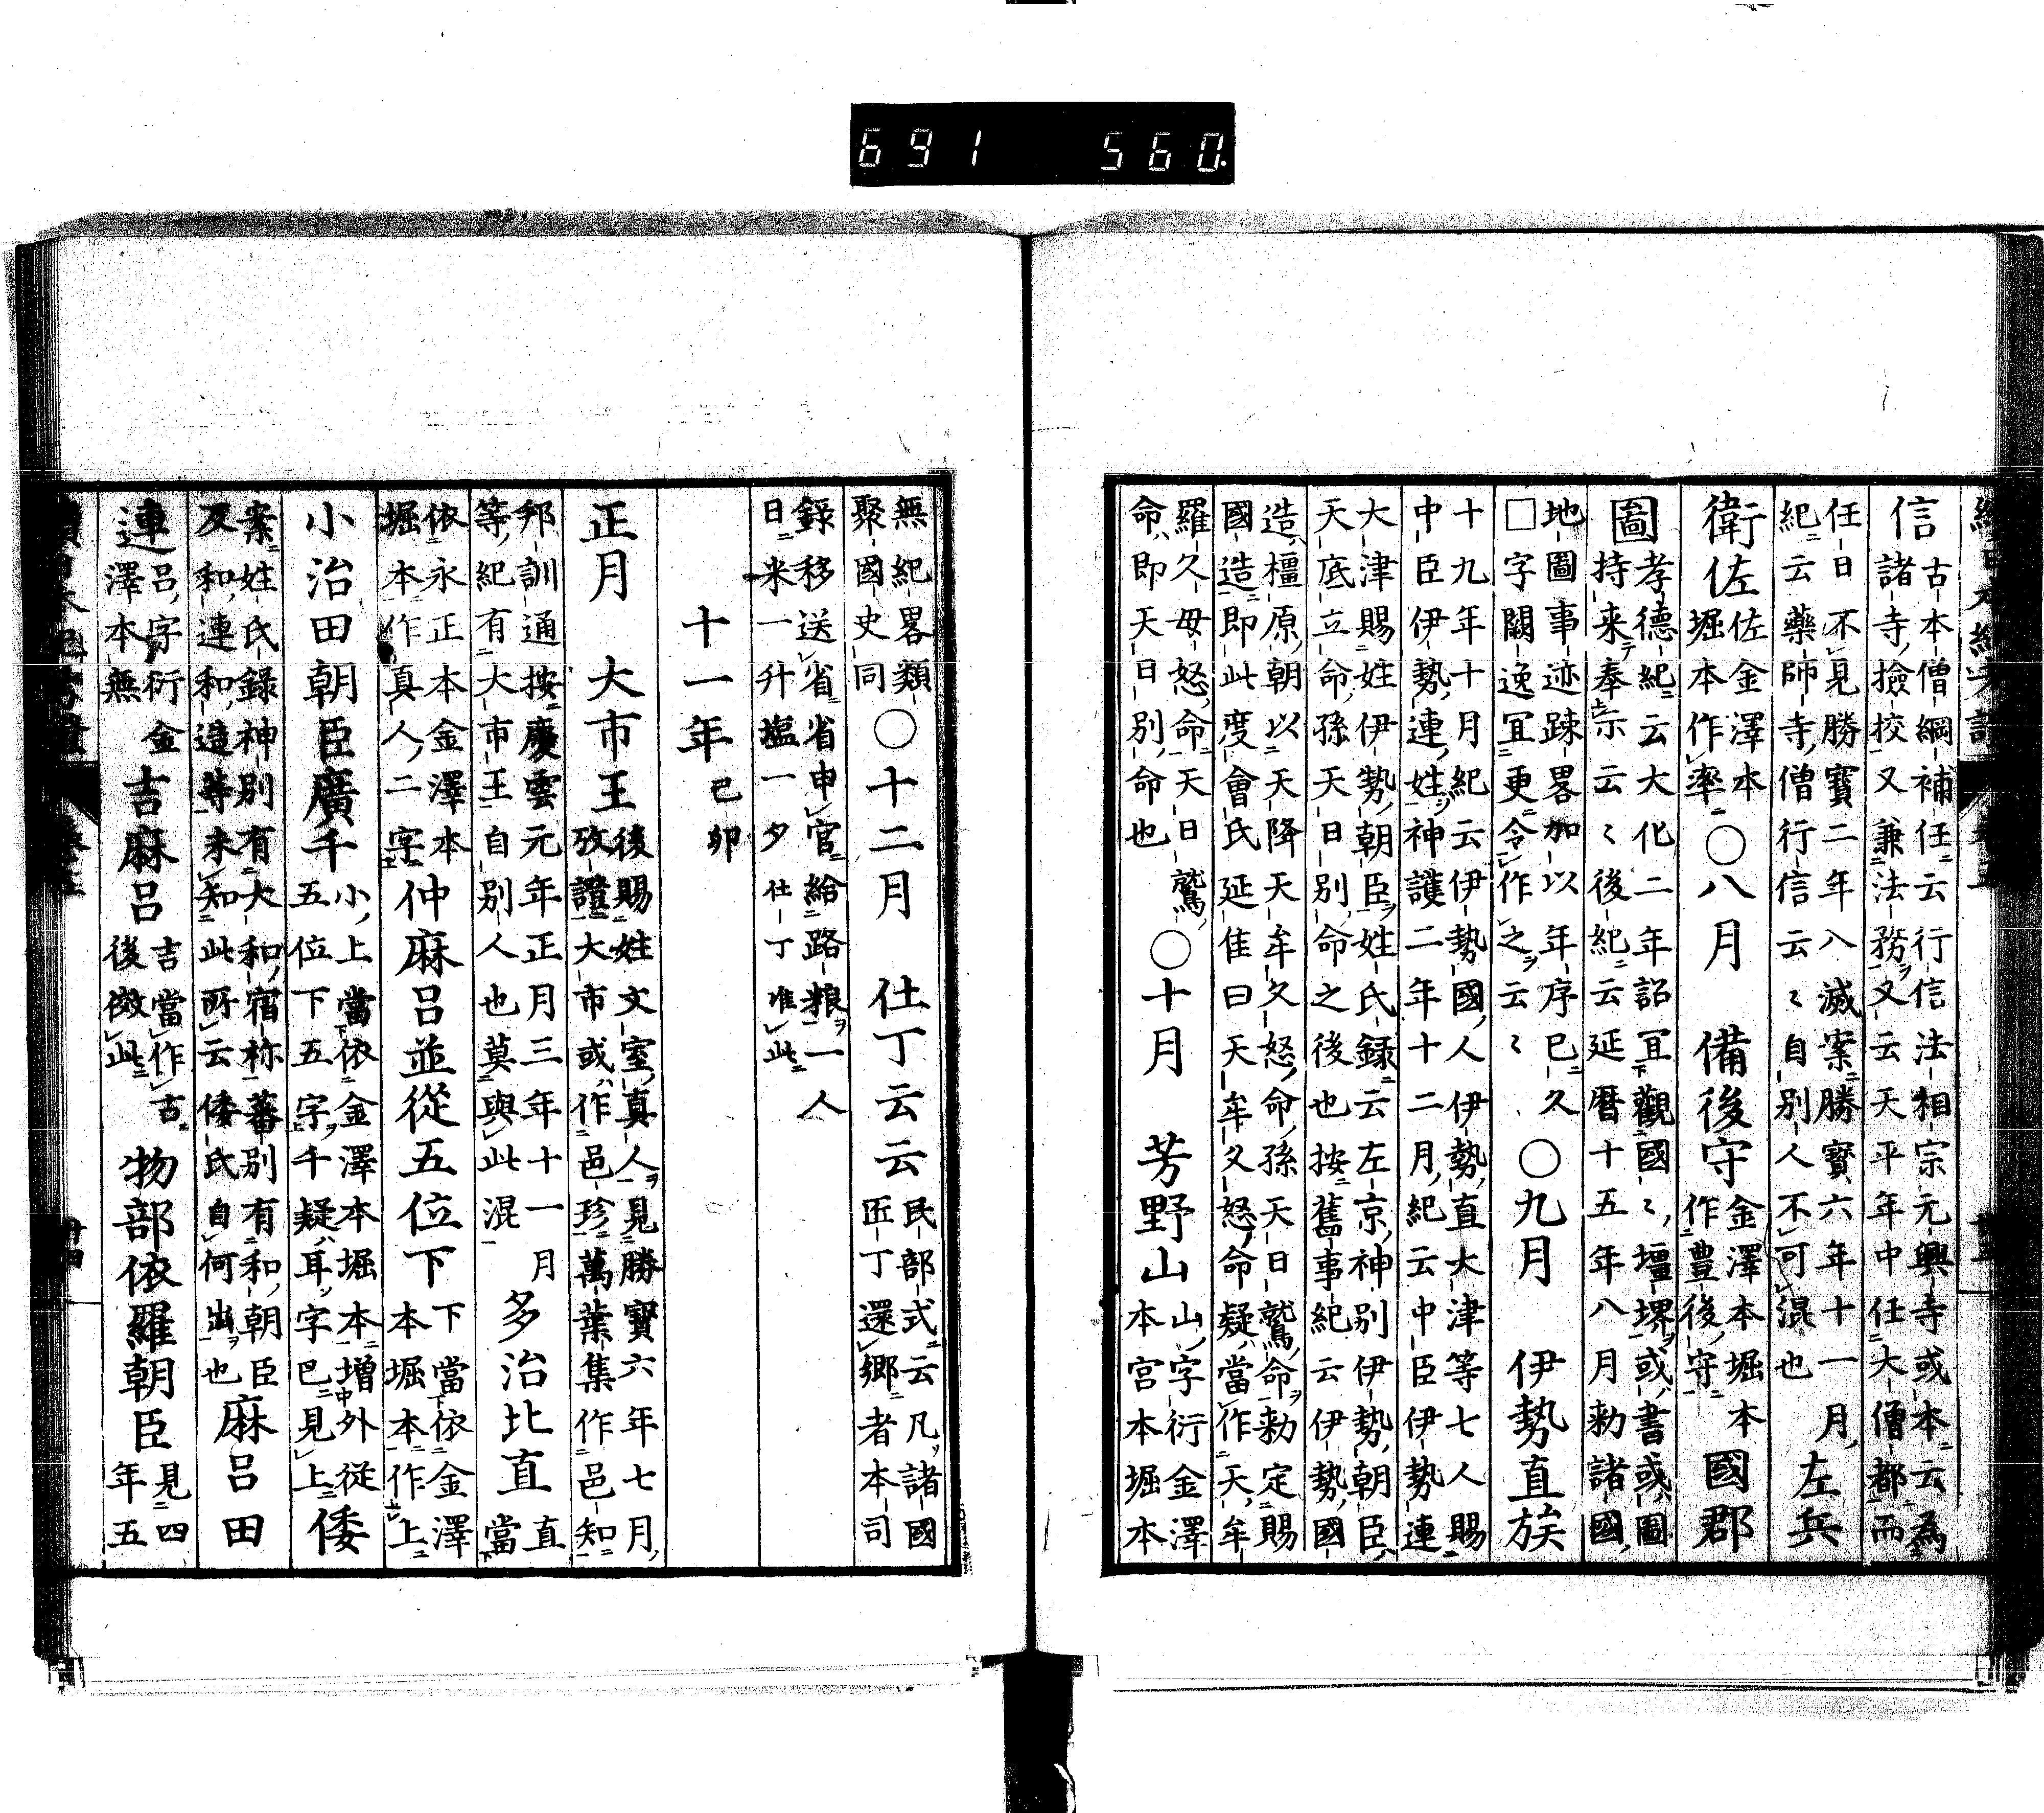 信古本僧綱補任云行信法相宗元興寺或本云為諸寺撿挍又兼法務又云天平年中任大僧都而
任日不見勝寶二年八滅案勝寶六年十一月紀云藥師寺僧行信云〻自別人不可混也左兵
衛佐佐金澤本堀本作率〇八月 備後守金澤本堀本作豊後守 國郡
圖孝德紀云大化二年詔冝觀國〻壃堺或書或圖持来奉示云〻後紀云延暦十五年八月勅諸國
地圖事迹踈畧加以年序已久□字闕逸冝更令作之云〻〇九月 伊勢直族
十九年十月紀云伊勢國人伊勢直大津等七人賜中臣伊勢連姓神護二年十二月紀云中臣伊勢連
大津賜姓伊勢朝臣姓氏録云左京神別伊勢朝臣天底立命孫天日別命之後也按舊事紀云伊勢國
造橿原朝以天降天牟久怒命孫天日鷲命勅定賜國造即此度會氏延佳曰天牟久怒命疑當作天牟
羅久毋怒命天日鷲命即天日別命也〇十月 芳野山山字衍金澤本宮本堀本
無紀畧類聚國史同〇十二月 仕丁云云民部式云凡諸國匠丁還郷者本司
錄移送省省申官給路粮一人日米一升塩一夕仕丁准此
十一年己卯
正月 大市王後賜姓文室真人見勝寶六年七月攷證大市或作邑珍萬葉集作邑知
邦訓通按慶雲元年正月三年十一月等紀有大市王自別人也莫與此混 多治比直直當
依永正本金澤本堀本作真人二字仲麻呂並從五位下下當依金澤本堀本作上
小治田朝臣廣千小上當依金澤本堀本增外從五位下五字千疑耳字已見上 倭
案姓氏錄神別有大和宿祢蕃別有和朝臣及和連和造等未知此所云倭氏自何出也 麻呂田
連呂字衍金澤本無 吉麻呂吉當作古後傚此 物部依羅朝臣見四年五